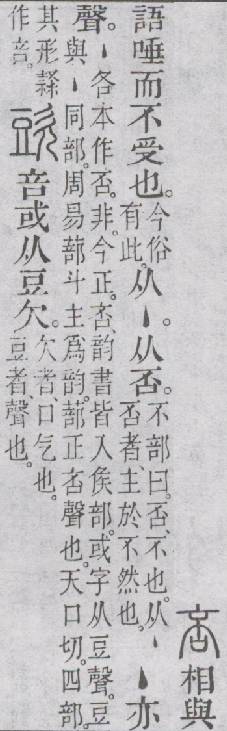 咅 相與
語唾而不受也。今俗有此。从丶。从否。不部曰。否、不也。从丶否者、主於不然也。丶亦
聲。丶各本作否。非。今正。咅、韵書皆入侯部。或字从豆聲。豆與丶同部。周易蔀斗主爲韵。蔀正咅聲也。天口切。四部。
其形隸作咅。 㰯 咅或从豆欠。欠者、口气也。豆者、聲也。